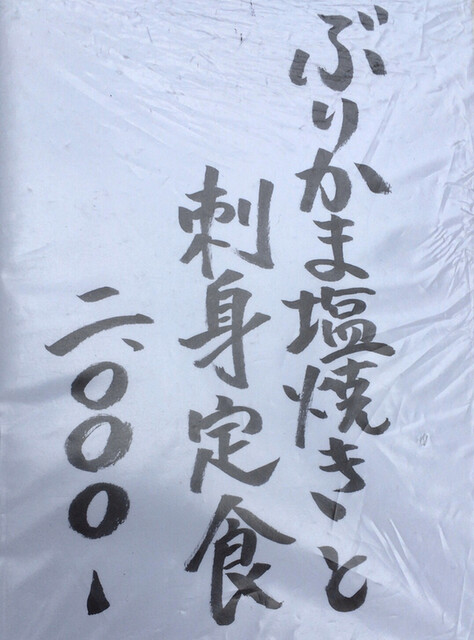 ぶりかま塩焼きと
刺身定食
二、〇〇〇、